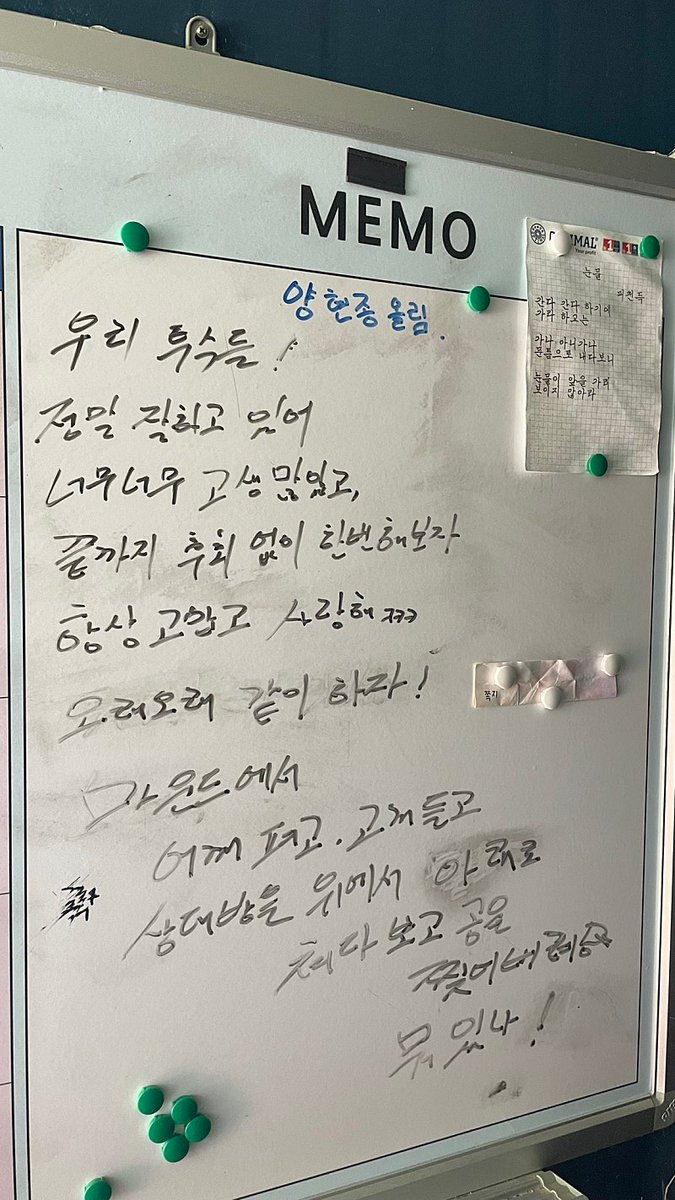 MEMO
양현종 올림.
우리 투수들!
정말 잘하고 있어
너무너무 고생많았고,
끝까지 후회 없이 한번해보자
항상 고맙고 사랑해 ㅋㅋㅋ
오래오래 같이 하자!
마운드에서
어깨 펴고. 고개들고
상대방을 위에서 아래로
쳐다 보고 공을
찢어버려
뭐 있나!
IMAL
Your profit
눈물
피천득
간다 간다 하기에
가라 하고는
가나 아니가나
문틈으로 내다보니
눈물이 앞을 가려
보이지 않아라
쪽지